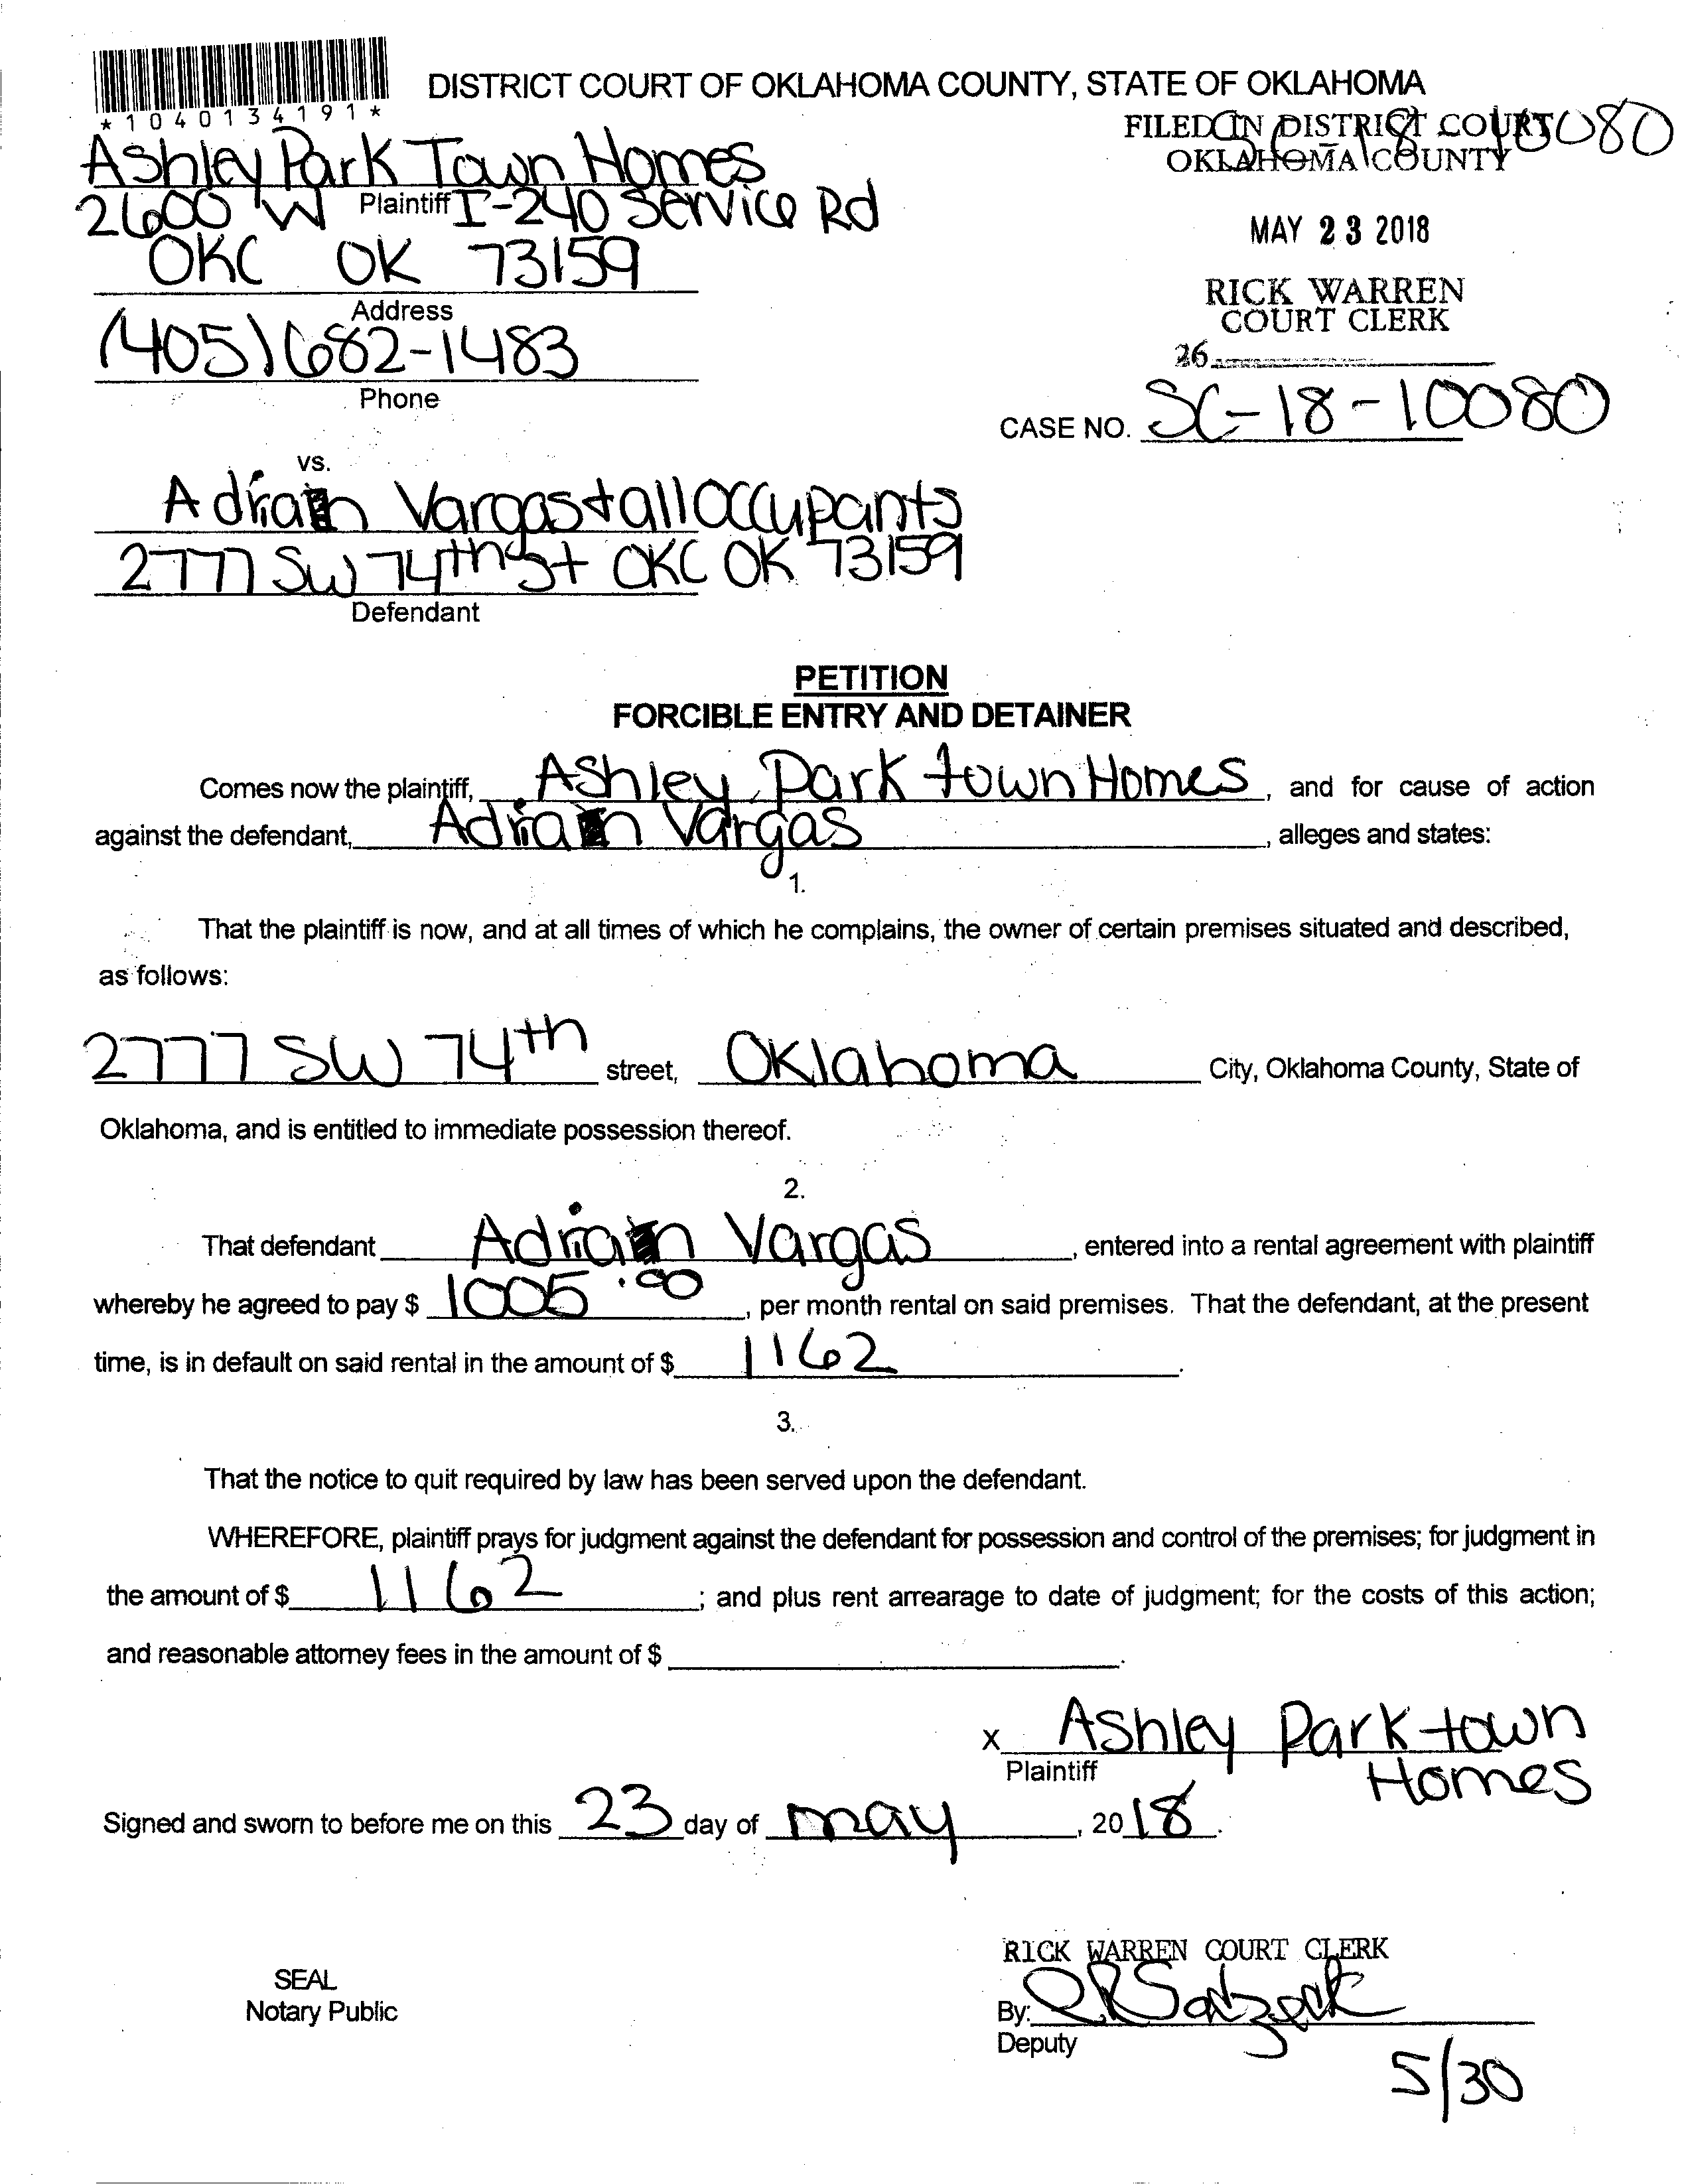 *1040134191*
DISTRICT COURT OF OKLAHOMA COUNTY, STATE OF OKLAHOMA
FILED IN DISTRICT COURT
OKLAHOMA COUNTY
Ashley Park Town Homes
Plaintiff
2600 W I-240 Service Rd
MAY 23 2018
OKC OK 73159
Address
RICK WARREN
COURT CLERK
(405) 682-1483
Phone
26
CASE NO. SC-18-10080
vs.
Adrian Vargas + all occupants
2777 SW 74th St OKC OK 73159
Defendant
PETITION
FORCIBLE ENTRY AND DETAINER
Comes now the plaintiff, Ashley Park town Homes, and for cause of action
against the defendant, Adrian Vargas, alleges and states:
1.
That the plaintiff is now, and at all times of which he complains, the owner of certain premises situated and described,
as follows:
2777 SW 74th street, Oklahoma City, Oklahoma County, State of
Oklahoma, and is entitled to immediate possession thereof.
2.
That defendant Adrian Vargas, entered into a rental agreement with plaintiff
whereby he agreed to pay $ 1005.00, per month rental on said premises. That the defendant, at the present
time, is in default on said rental in the amount of $ 1162.
3.
That the notice to quit required by law has been served upon the defendant.
WHEREFORE, plaintiff prays for judgment against the defendant for possession and control of the premises; for judgment in
the amount of $ 1162; and plus rent arrearage to date of judgment; for the costs of this action;
and reasonable attorney fees in the amount of $
x Ashley Park town
Homes
Plaintiff
Signed and sworn to before me on this 23 day of may, 2018.
RICK WARREN COURT CLERK
SEAL
Notary Public
By:
Deputy
5/30